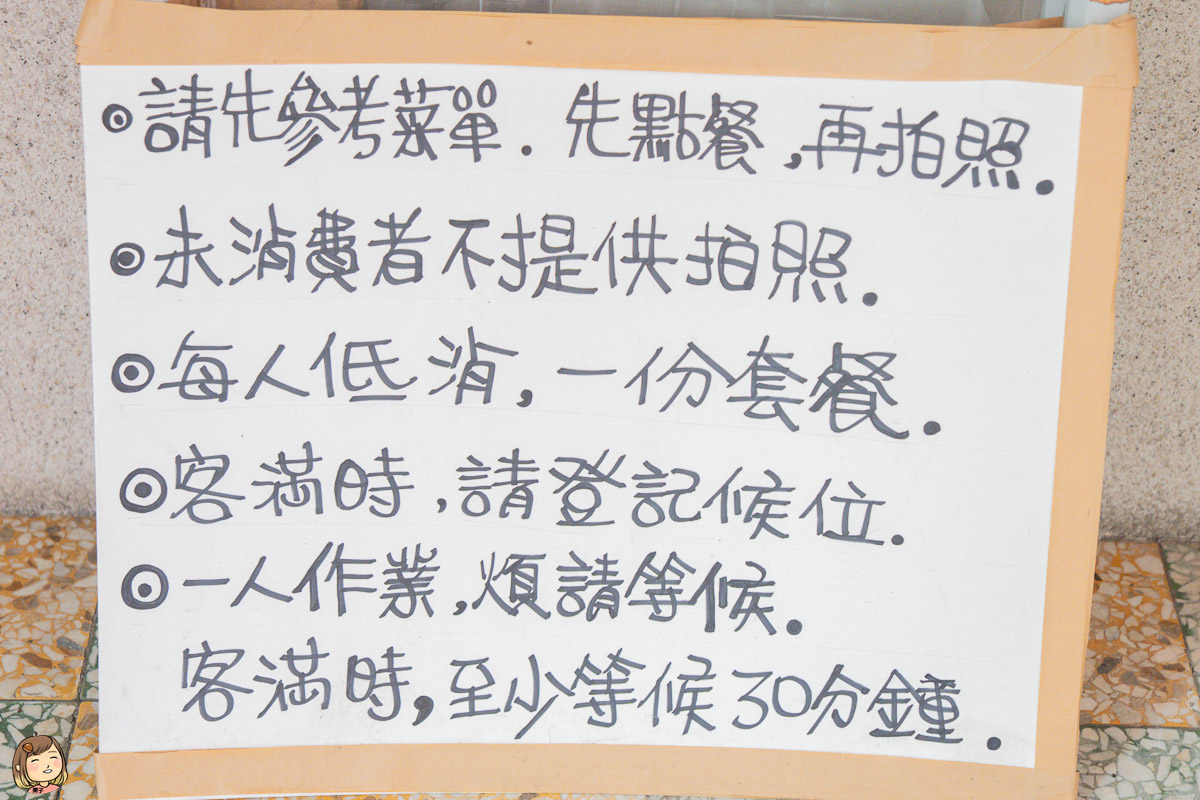 ◎請先參考菜單.先點餐,再拍照.
◎未消費者不提供拍照.
◎每人低消,一份套餐.
◎客滿時,請登記候位.
◎一人作業,煩請等候.
客滿時,至少等候30分鐘.